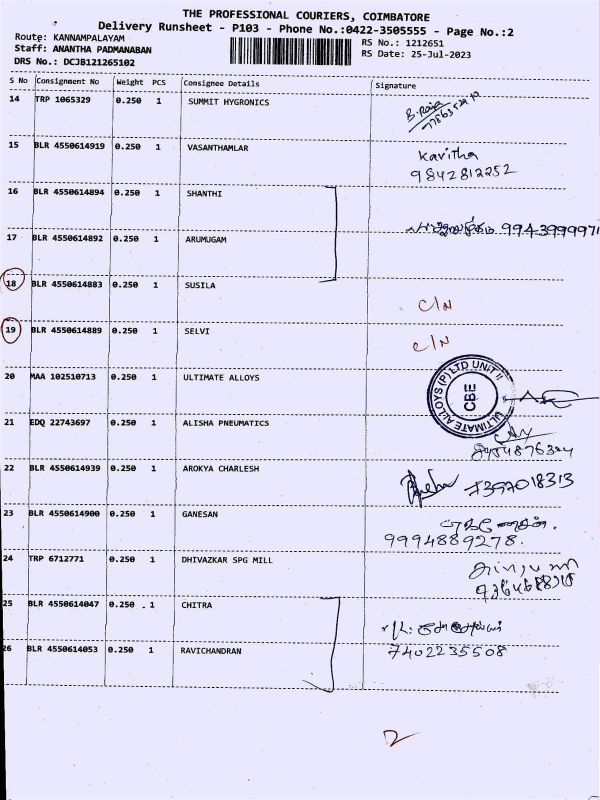 THE PROFESSIONAL COURIERS, COIMBATORE
Delivery Runsheet - P103 - Phone No.:0422-3505555 - Page No.:2
Route: KANNAMPALAYAM
Staff: ANANTHA PADMANABAN
DRS No.: DCJB121265102
RS No.: 1212651
RS Date: 25-Jul-2023
S No Consignment No Weight PCS Consignee Details Signature
14 TRP 1065329 0.250 1 SUMMIT HYGRONICS B. Raja
15 BLR 4550614919 0.250 1 VASANTHAMLAR Kavitha
9842812252
16 BLR 4550614894 0.250 1 SHANTHI
17 BLR 4550614892 0.250 1 ARUMUGAM 9943999971
18 BLR 4550614883 0.250 1 SUSILA C/N
19 BLR 4550614889 0.250 1 SELVI C/N
20 MAA 102510713 0.250 1 ULTIMATE ALLOYS ULTIMATE ALLOYS (P) LTD UNIT II CBE
21 EDQ 22743697 0.250 1 ALISHA PNEUMATICS
22 BLR 4550614939 0.250 1 AROKYA CHARLESH 7397018313
23 BLR 4550614900 0.250 1 GANESAN
9994889278.
24 TRP 6712771 0.250 1 DHIVAZKAR SPG MILL
25 BLR 4550614047 0.250 1 CHITRA
26 BLR 4550614053 0.250 1 RAVICHANDRAN 7402235508
2